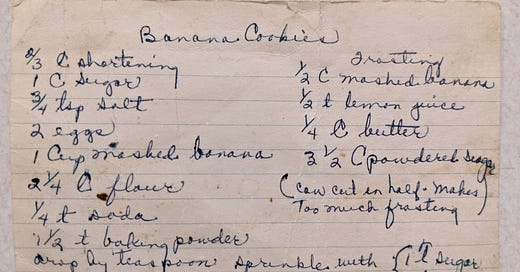 Banana Cookies
2/3 C shortening
1 C Sugar
3/4 tsp Salt
2 eggs
1 Cup mashed banana
2 1/4 C flour
1/4 t soda
1 1/2 t baking powder
drop by teaspoon sprinkle with { 1 t sugar
Frosting
1/2 C mashed banana
1/2 t lemon juice
1/4 C butter
3 1/2 C powdered sugar
(Can cut in half - makes
too much frosting)